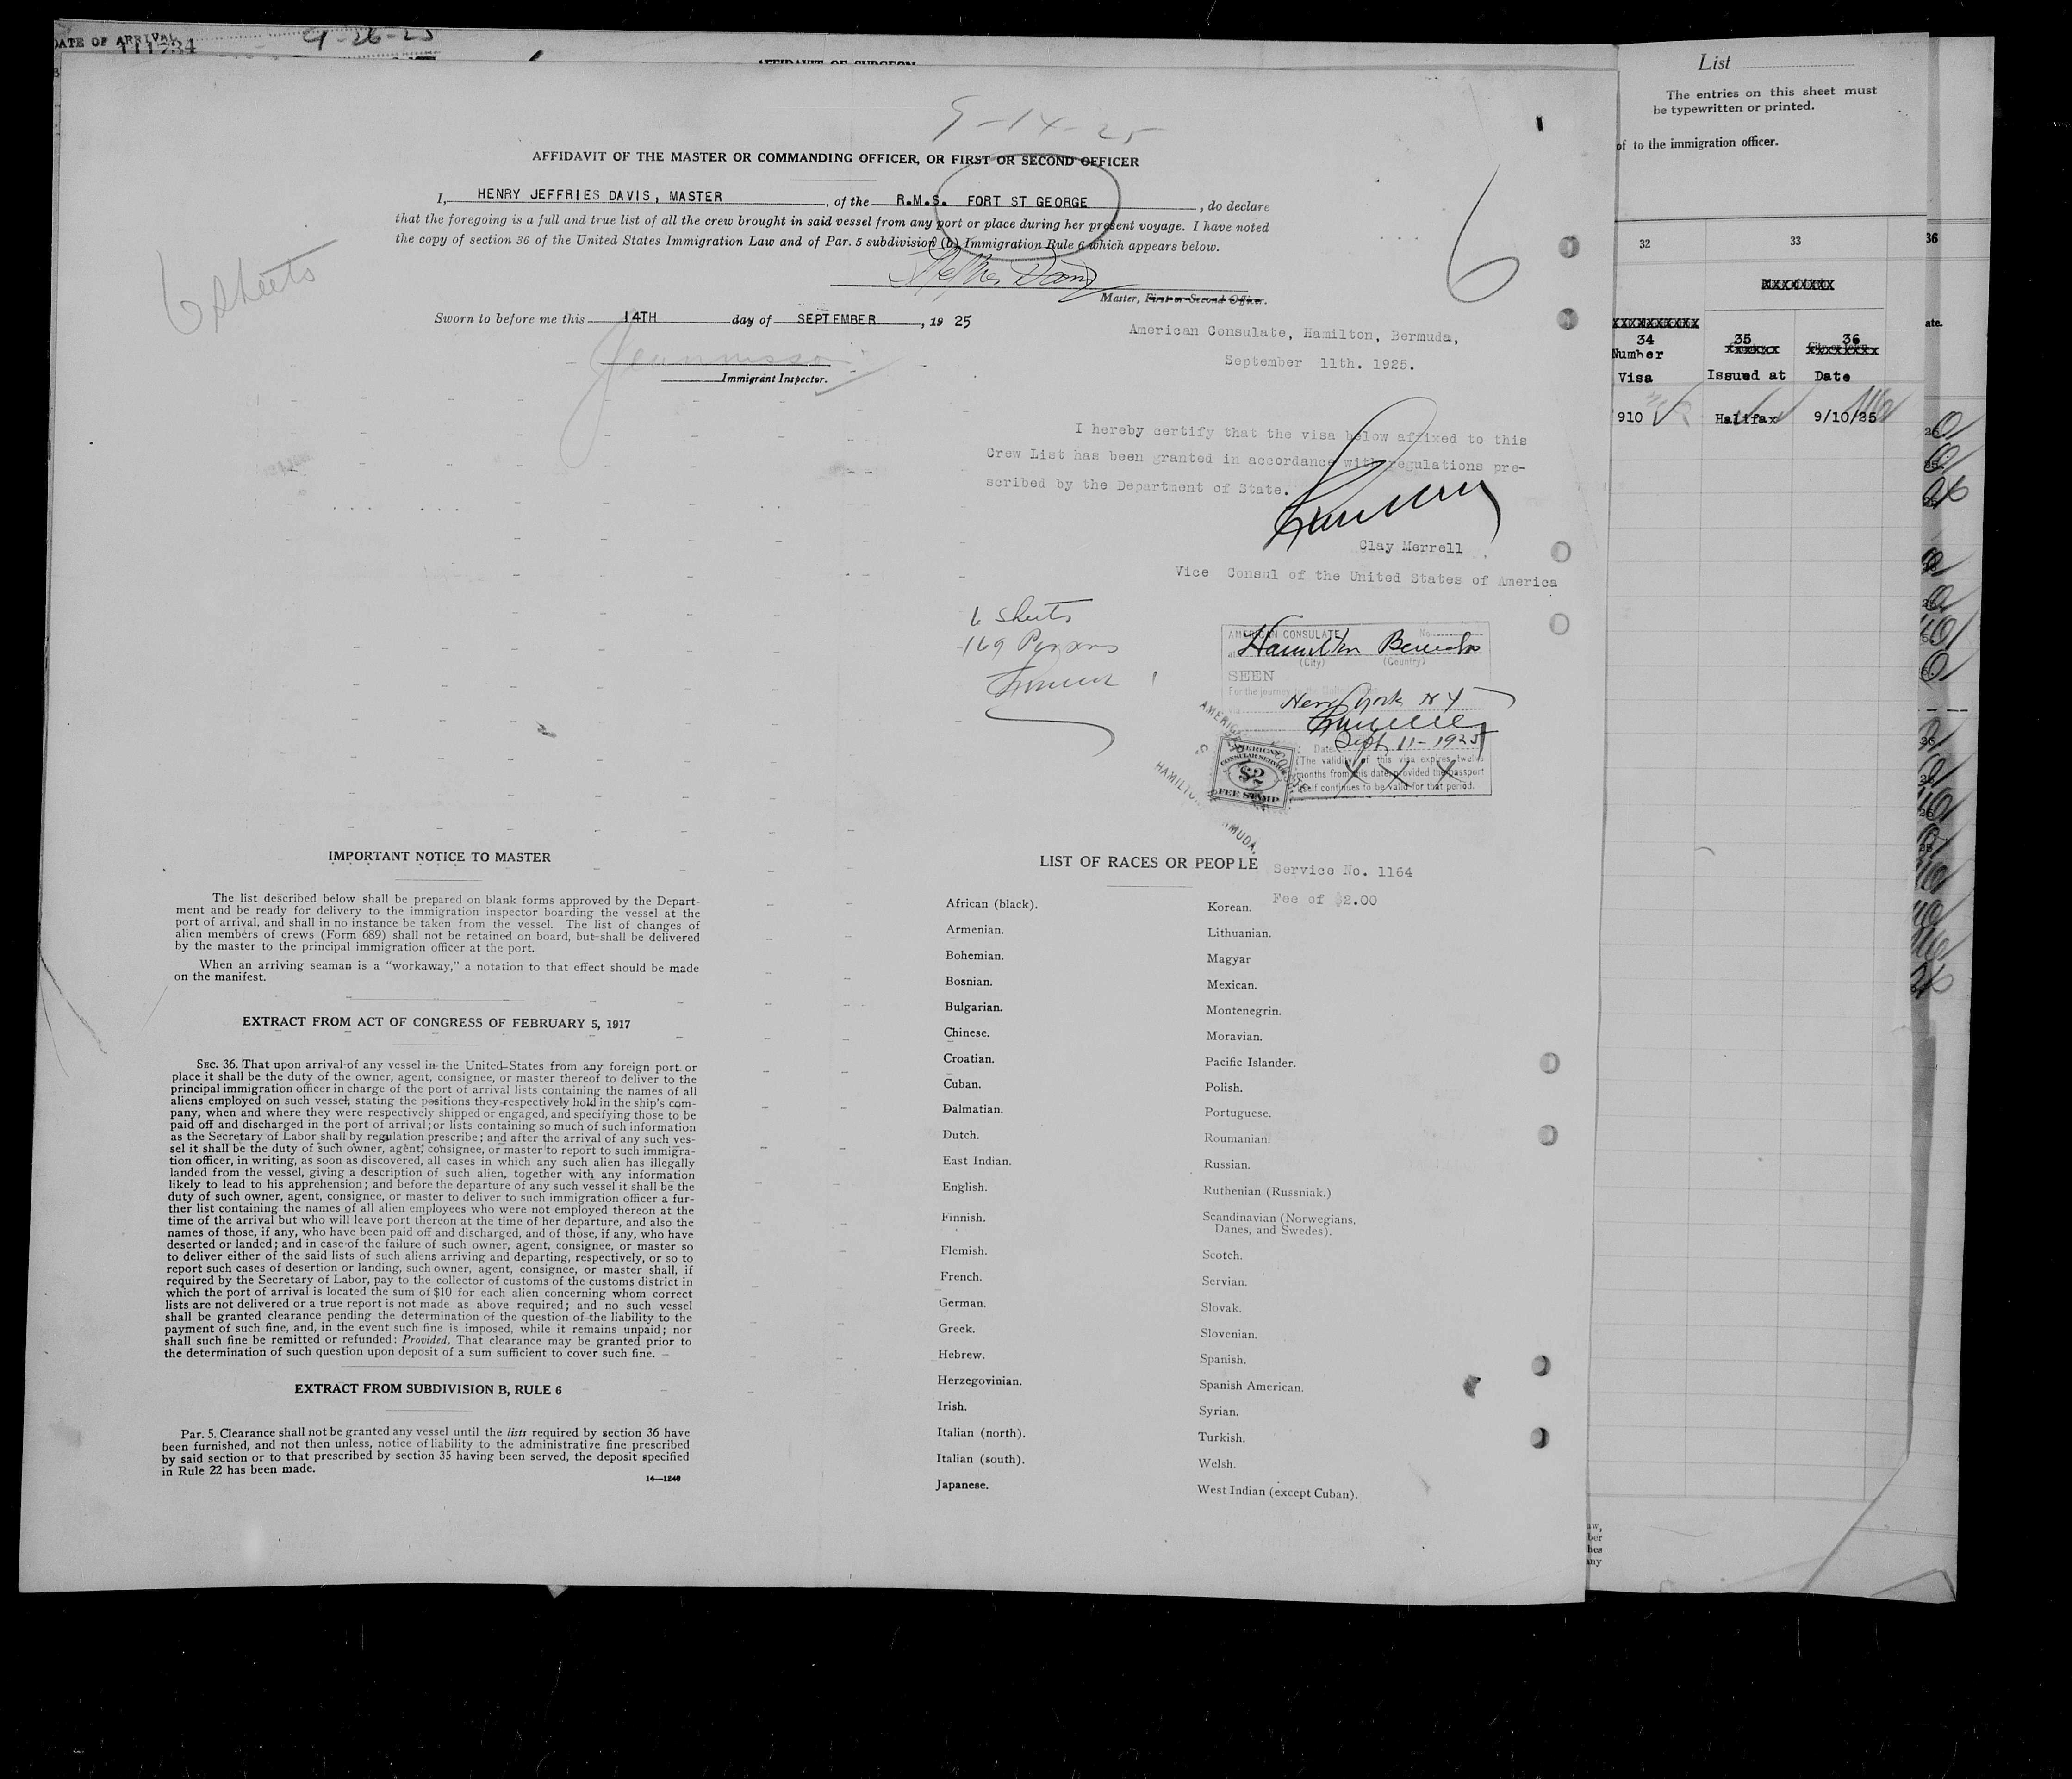 DATE OF ARRIVAL
9-26-25
AFFIDAVIT OF SURGEON
9-14-25
AFFIDAVIT OF THE MASTER OR COMMANDING OFFICER, OR FIRST OR SECOND OFFICER
I, HENRY JEFFRIES DAVIS, MASTER, of the R.M.S. FORT ST GEORGE, do declare
that the foregoing is a full and true list of all the crew brought in said vessel from any port or place during her present voyage. I have noted
the copy of section 36 of the United States Immigration Law and of Par. 5 subdivision (b) Immigration Rule 6 which appears below.
6
6 sheets
Master, First or Second Officer.
Sworn to before me this 14TH day of SEPTEMBER, 19 25
Immigrant Inspector.
American Consulate, Hamilton, Bermuda,
September 11th. 1925.
I hereby certify that the visa below affixed to this
Crew List has been granted in accordance with regulations pre-
scribed by the Department of State.
Clay Merrell
Vice Consul of the United States of America
6 Sheets
169 Persons
AMERICAN CONSULATE No.
at Hamilton Bermuda
(City) (Country)
SEEN
For the journey to the United States
New York N Y
Date Sept 11-1925
(The validity of this visa expires twelve
months from this date provided the passport
itself continues to be valid for that period.
X X X
AMERICAN
CONSULAR SERVICE
$2
FEE STAMP
HAMILTON BERMUDA.
IMPORTANT NOTICE TO MASTER
The list described below shall be prepared on blank forms approved by the Depart-
ment and be ready for delivery to the immigration inspector boarding the vessel at the
port of arrival, and shall in no instance be taken from the vessel. The list of changes of
alien members of crews (Form 689) shall not be retained on board, but shall be delivered
by the master to the principal immigration officer at the port.
When an arriving seaman is a "workaway," a notation to that effect should be made
on the manifest.
EXTRACT FROM ACT OF CONGRESS OF FEBRUARY 5, 1917
SEC. 36. That upon arrival of any vessel in the United States from any foreign port or
place it shall be the duty of the owner, agent, consignee, or master thereof to deliver to the
principal immigration officer in charge of the port of arrival lists containing the names of all
aliens employed on such vessel, stating the positions they respectively hold in the ship's com-
pany, when and where they were respectively shipped or engaged, and specifying those to be
paid off and discharged in the port of arrival; or lists containing so much of such information
as the Secretary of Labor shall by regulation prescribe; and after the arrival of any such ves-
sel it shall be the duty of such owner, agent, consignee, or master to report to such immigra-
tion officer, in writing, as soon as discovered, all cases in which any such alien has illegally
landed from the vessel, giving a description of such alien, together with any information
likely to lead to his apprehension; and before the departure of any such vessel it shall be the
duty of such owner, agent, consignee, or master to deliver to such immigration officer a fur-
ther list containing the names of all alien employees who were not employed thereon at the
time of the arrival but who will leave port thereon at the time of her departure, and also the
names of those, if any, who have been paid off and discharged, and of those, if any, who have
deserted or landed; and in case of the failure of such owner, agent, consignee, or master so
to deliver either of the said lists of such aliens arriving and departing, respectively, or so to
report such cases of desertion or landing, such owner, agent, consignee, or master shall, if
required by the Secretary of Labor, pay to the collector of customs of the customs district in
which the port of arrival is located the sum of $10 for each alien concerning whom correct
lists are not delivered or a true report is not made as above required; and no such vessel
shall be granted clearance pending the determination of the question of the liability to the
payment of such fine, and, in the event such fine is imposed, while it remains unpaid; nor
shall such fine be remitted or refunded: Provided, That clearance may be granted prior to
the determination of such question upon deposit of a sum sufficient to cover such fine.
EXTRACT FROM SUBDIVISION B, RULE 6
Par. 5. Clearance shall not be granted any vessel until the lists required by section 36 have
been furnished, and not then unless, notice of liability to the administrative fine prescribed
by said section or to that prescribed by section 35 having been served, the deposit specified
in Rule 22 has been made.
14—1240
LIST OF RACES OR PEOPLE
Service No. 1164
Fee of $2.00
African (black).
Armenian.
Bohemian.
Bosnian.
Bulgarian.
Chinese.
Croatian.
Cuban.
Dalmatian.
Dutch.
East Indian.
English.
Finnish.
Flemish.
French.
German.
Greek.
Hebrew.
Herzegovinian.
Irish.
Italian (north).
Italian (south).
Japanese.
Korean.
Lithuanian.
Magyar
Mexican.
Montenegrin.
Moravian.
Pacific Islander.
Polish.
Portuguese.
Roumanian.
Russian.
Ruthenian (Russniak.)
Scandinavian (Norwegians,
Danes, and Swedes).
Scotch.
Servian.
Slovak.
Slovenian.
Spanish.
Spanish American.
Syrian.
Turkish.
Welsh.
West Indian (except Cuban).
List
The entries on this sheet must
be typewritten or printed.
of to the immigration officer.
32 33 36
34 35 36
Number
Visa Issued at Date
910 Halifax 9/10/25
ate.